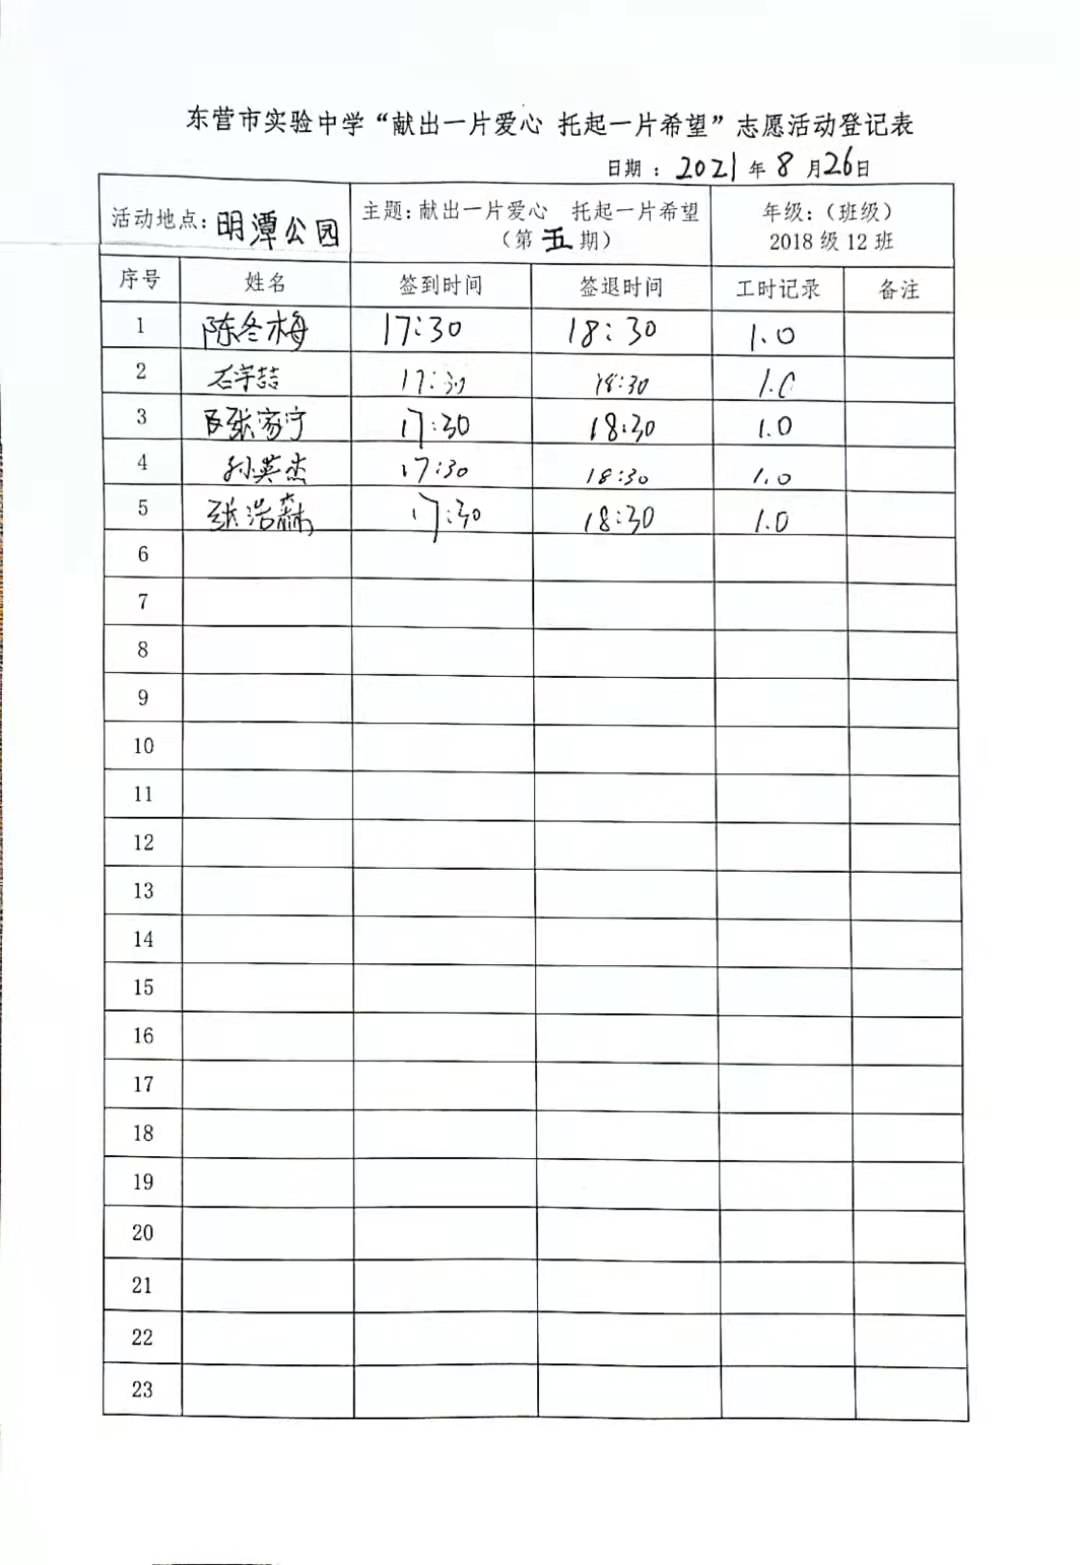 东营市实验中学“献出一片爱心 托起一片希望”志愿活动登记表
日期：2021年8月26日
活动地点:明潭公园 主题:献出一片爱心 托起一片希望 （第五期） 年级:（班级） 2018级12班
序号 姓名 签到时间 签退时间 工时记录 备注
1 陈冬梅 17:30 18:30 1.0
2 石宇喆 17:30 18:30 1.0
3 张家宁 17:30 18:30 1.0
4 孙英杰 17:30 18:30 1.0
5 张浩 17:30 18:30 1.0
6
7
8
9
10
11
12
13
14
15
16
17
18
19
20
21
22
23